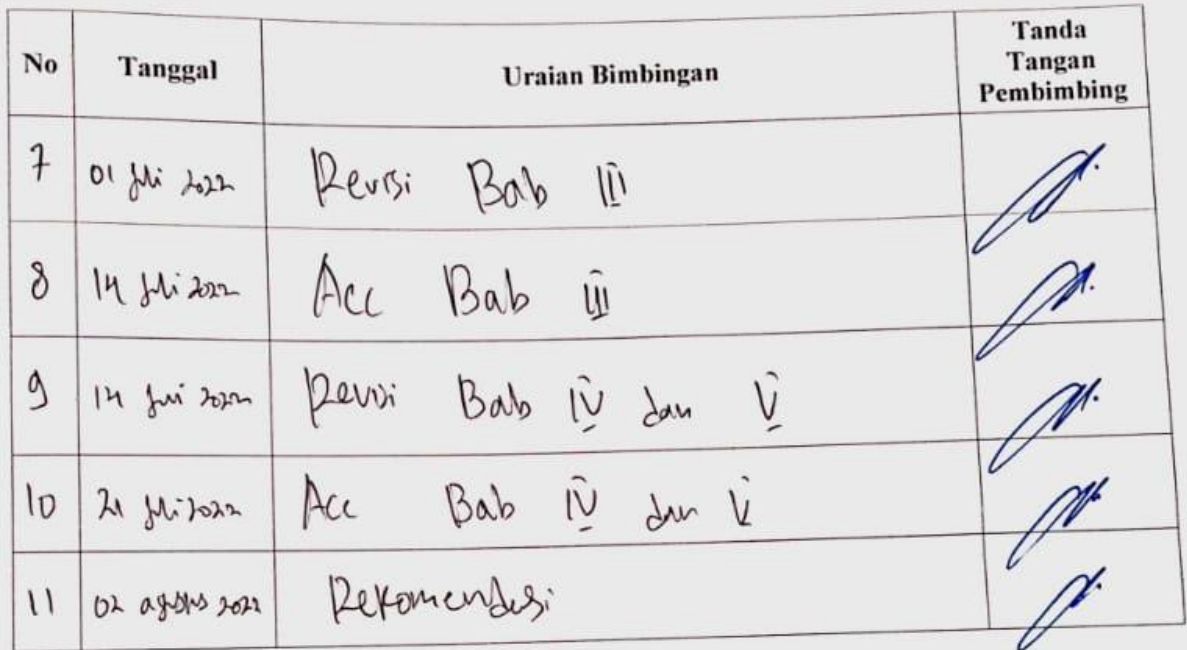 No Tanggal Uraian Bimbingan Tanda Tangan Pembimbing
7 01 Juli 2022 Revisi Bab III
8 14 Juli 2022 Acc Bab III
9 14 Juli 2022 Revisi Bab IV dan V
10 21 Juli 2022 Acc Bab IV dan V
11 02 agustus 2022 Rekomendasi